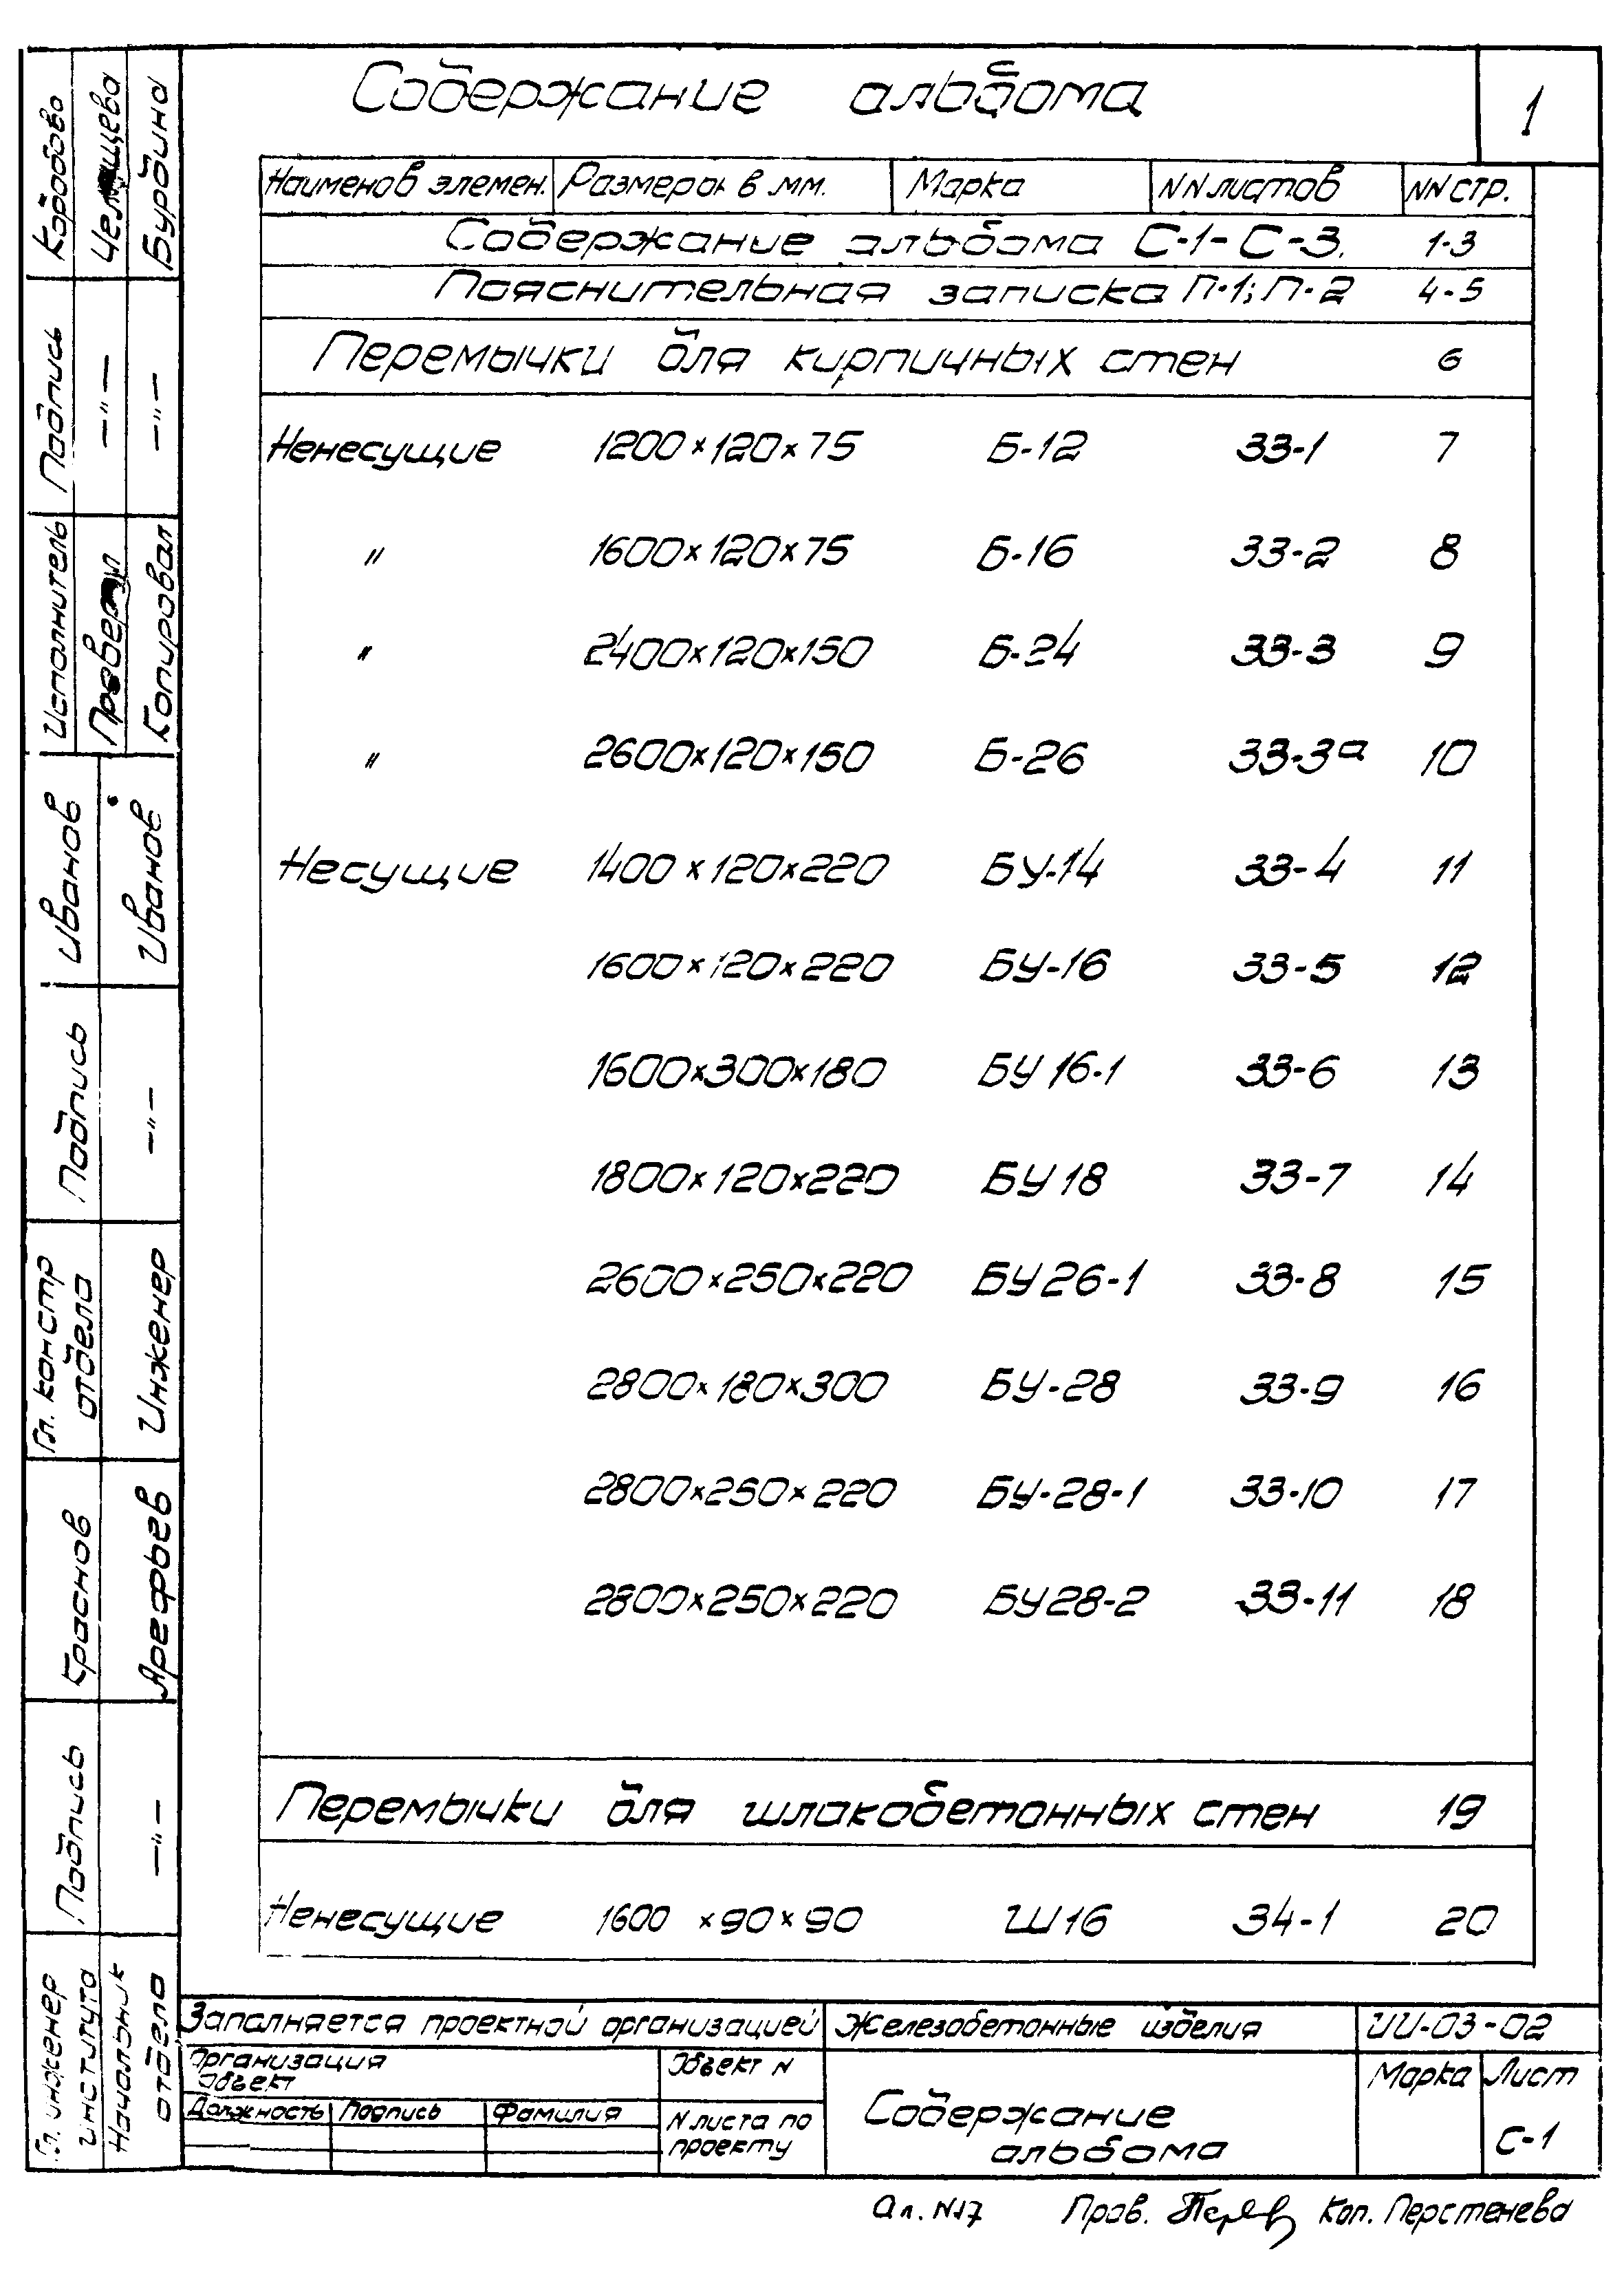 Содержание альбома
1
Наименов элемен. Размеры в мм. Марка NN листов NN стр.
Содержание альбома С-1-С-3. 1-3
Пояснительная записка П-1; П-2 4-5
Перемычки для кирпичных стен 6
Ненесущие 1200×120×75 Б-12 33-1 7
" 1600×120×75 Б-16 33-2 8
" 2400×120×150 Б-24 33-3 9
" 2600×120×150 Б-26 33-3а 10
Несущие 1400×120×220 БУ-14 33-4 11
1600×120×220 БУ-16 33-5 12
1600×300×180 БУ 16-1 33-6 13
1800×120×220 БУ 18 33-7 14
2600×250×220 БУ 26-1 33-8 15
2800×180×300 БУ-28 33-9 16
2800×250×220 БУ-28-1 33-10 17
2800×250×220 БУ 28-2 33-11 18
Перемычки для шлакобетонных стен 19
Ненесущие 1600×90×90 Ш16 34-1 20
Заполняется проектной организацией Железобетонные изделия ИИ-03-02
Организация
Объект
Объект N
Должность Подпись Фамилия
N листа по
проекту
Содержание
альбома
Марка Лист
С-1
Ал. N17 Пров. Коп. Перстенева
Гл. инженер
института
Подпись
Краснов
Гл. констр
отдела
Подпись
Иванов
Исполнитель
Подпись
Коробова
Начальник
отдела
-"-
Арефьев
Инженер
-"-
Иванов
Проверил
-"-
Копировал
-"-
Бурдина